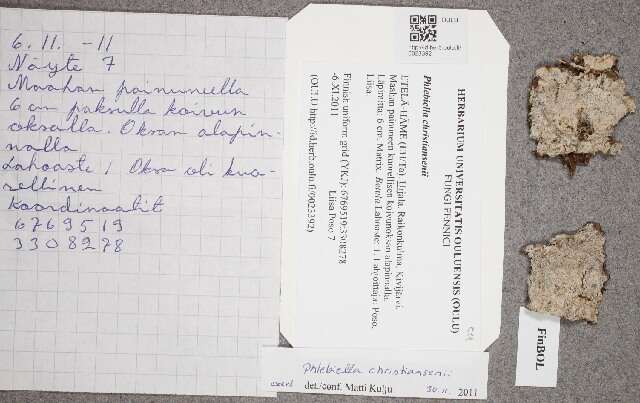 6. 11. -11
Näyte 7
Maahan painuneella
6 cm paksulla koivun
oksalla. Oksan alapin-
nalla
Lahoaste 1 Oksa oli kuo-
rellinen
Koordinaatit
6769519
3308278
OULU
0023392
HERBARIUM UNIVERSITATIS OULUENSIS (OULU)
FUNGI FENNICI
Phlebiella christiansenii
ETELÄ-HÄME (EH/Ta) Urjala, Raikonkulma, Kivijärvi.
Maahan painuneen kuorellisen koivunoksan alapinnalla.
Läpimitta: 6 cm. Matrix: Betula Lahoaste: 1. Lahottaja: Poso,
Liisa.
Finnish uniform grid (YKJ): 6769519:3308278
-6.XI.2011 Liisa Poso 7
(OULU http://id.herb.oulu.fi/0023392)
Phlebiella christiansenii
det./conf. Matti Kulju 30.11. 2011
FinBOL